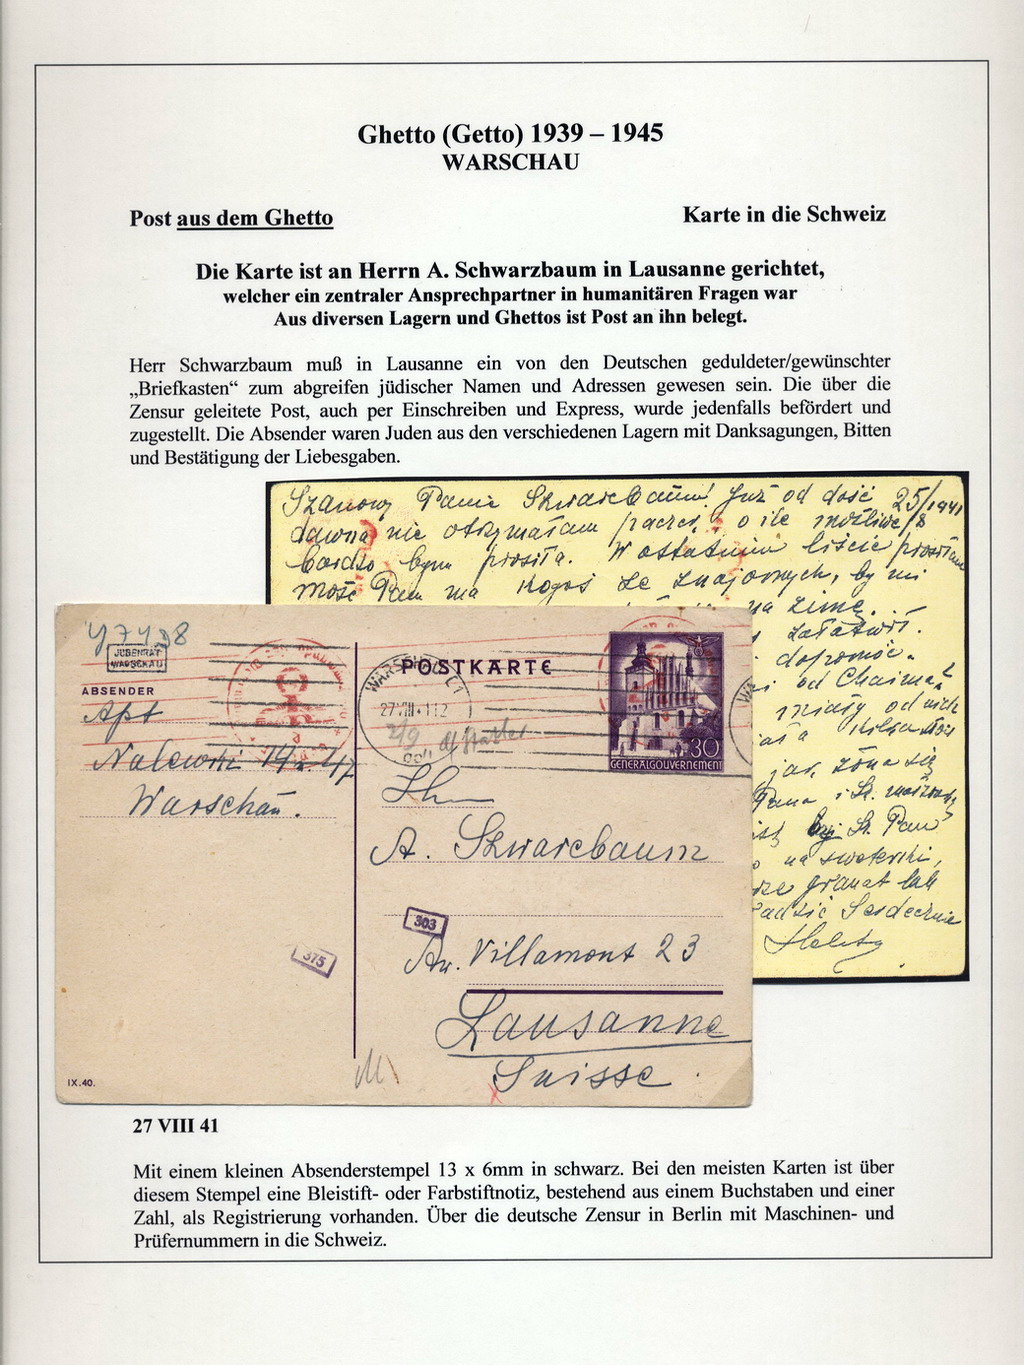 Ghetto (Getto) 1939 – 1945
WARSCHAU
Post aus dem Ghetto
Karte in die Schweiz
Die Karte ist an Herrn A. Schwarzbaum in Lausanne gerichtet,
welcher ein zentraler Ansprechpartner in humanitären Fragen war
Aus diversen Lagern und Ghettos ist Post an ihn belegt.
Herr Schwarzbaum muß in Lausanne ein von den Deutschen geduldeter/gewünschter
„Briefkasten“ zum abgreifen jüdischer Namen und Adressen gewesen sein. Die über die
Zensur geleitete Post, auch per Einschreiben und Express, wurde jedenfalls befördert und
zugestellt. Die Absender waren Juden aus den verschiedenen Lagern mit Danksagungen, Bitten
und Bestätigung der Liebesgaben.
25/8 1941
Szanowny Panie Szwarcbaum! Już od dość
dawna nie otrzymałam paczek, o ile możliwe
bardzo bym prosiła. W ostatnim liście prosiłam
może Pan ma kogoś ze znajomych, by mi
na zimę.
załatwić.
dopomóc.
od Chaima?
miały od nich
żona się
Pana i Sz. małżonkę
Sz. Pan
na sweterki,
granat lub
Serdecznie
JUDENRAT
WARSCHAU
ABSENDER
Apt
Nalewki
Warschau.
POSTKARTE
WARSCHAU C1
27.VIII.41.12
30
GENERALGOUVERNEMENT
A. Szwarcbaum
303
Av. Villamont 23
375
Lausanne
Suisse
IX.40.
27 VIII 41
Mit einem kleinen Absenderstempel 13 x 6mm in schwarz. Bei den meisten Karten ist über
diesem Stempel eine Bleistift- oder Farbstiftnotiz, bestehend aus einem Buchstaben und einer
Zahl, als Registrierung vorhanden. Über die deutsche Zensur in Berlin mit Maschinen- und
Prüfernummern in die Schweiz.